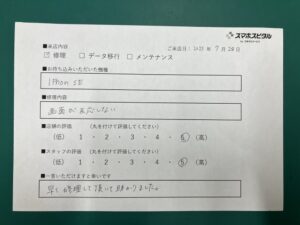 スマホスピタル
■来店内容
ご来店日: 2025 年 7 月 28 日
☑ 修理 □ データ移行 □ メンテナンス
■お持ち込みいただいた機種
iPhon SE
■修理内容
画面が反応しない
■店舗の評価 (丸を付けて評価してください)
(低) 1 ・ 2 ・ 3 ・ 4 ・ 5 (高)
■スタッフの評価 (丸を付けて評価してください)
(低) 1 ・ 2 ・ 3 ・ 4 ・ 5 (高)
■一言いただけますと幸いです
早く修理して頂いて助かりました。